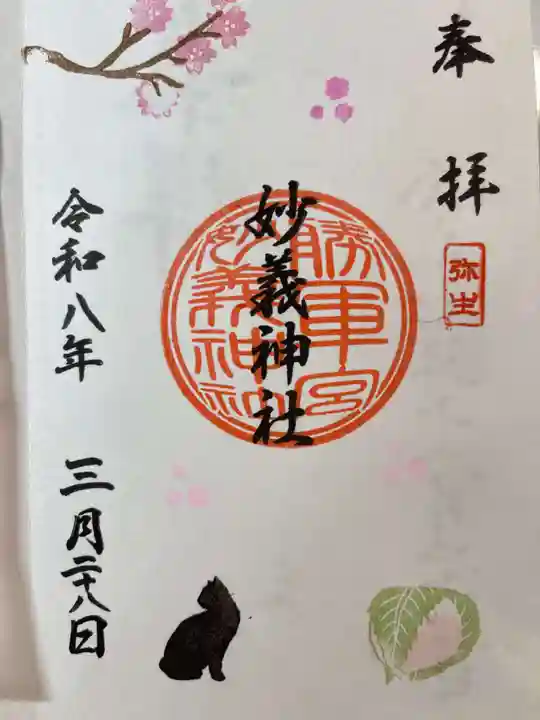 奉拝
弥生
妙義神社
勝軍宮
妙義神社
令和八年 三月二十八日